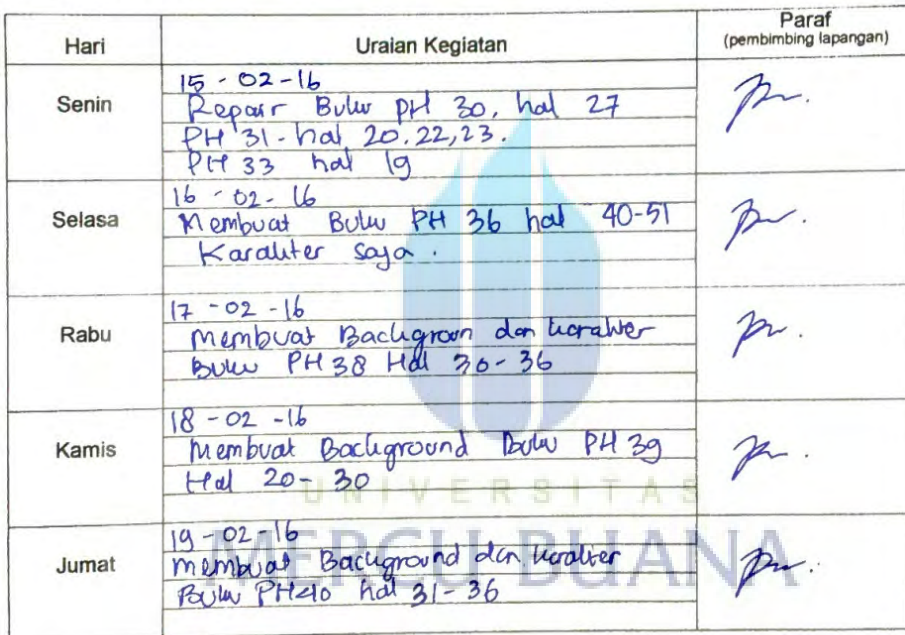 Hari Uraian Kegiatan Paraf
(pembimbing lapangan)
Senin
15 - 02 - 16
Repair Buku PH 30, hal 27
PH 31 - hal 20, 22, 23.
PH 33 hal 19
Selasa
16 - 02 - 16
Membuat Buku PH 36 hal 40-51
Karakter saja.
Rabu
17 - 02 - 16
Membuat Backgroun dan karakter
Buku PH 38 Hal 30-36
Kamis
18 - 02 - 16
Membuat Background Buku PH 39
Hal 20 - 30
UNIVERSITAS
Jumat
19 - 02 - 16
membuat Background dan karakter
Buku PH40 hal 31 - 36
MERCU BUANA